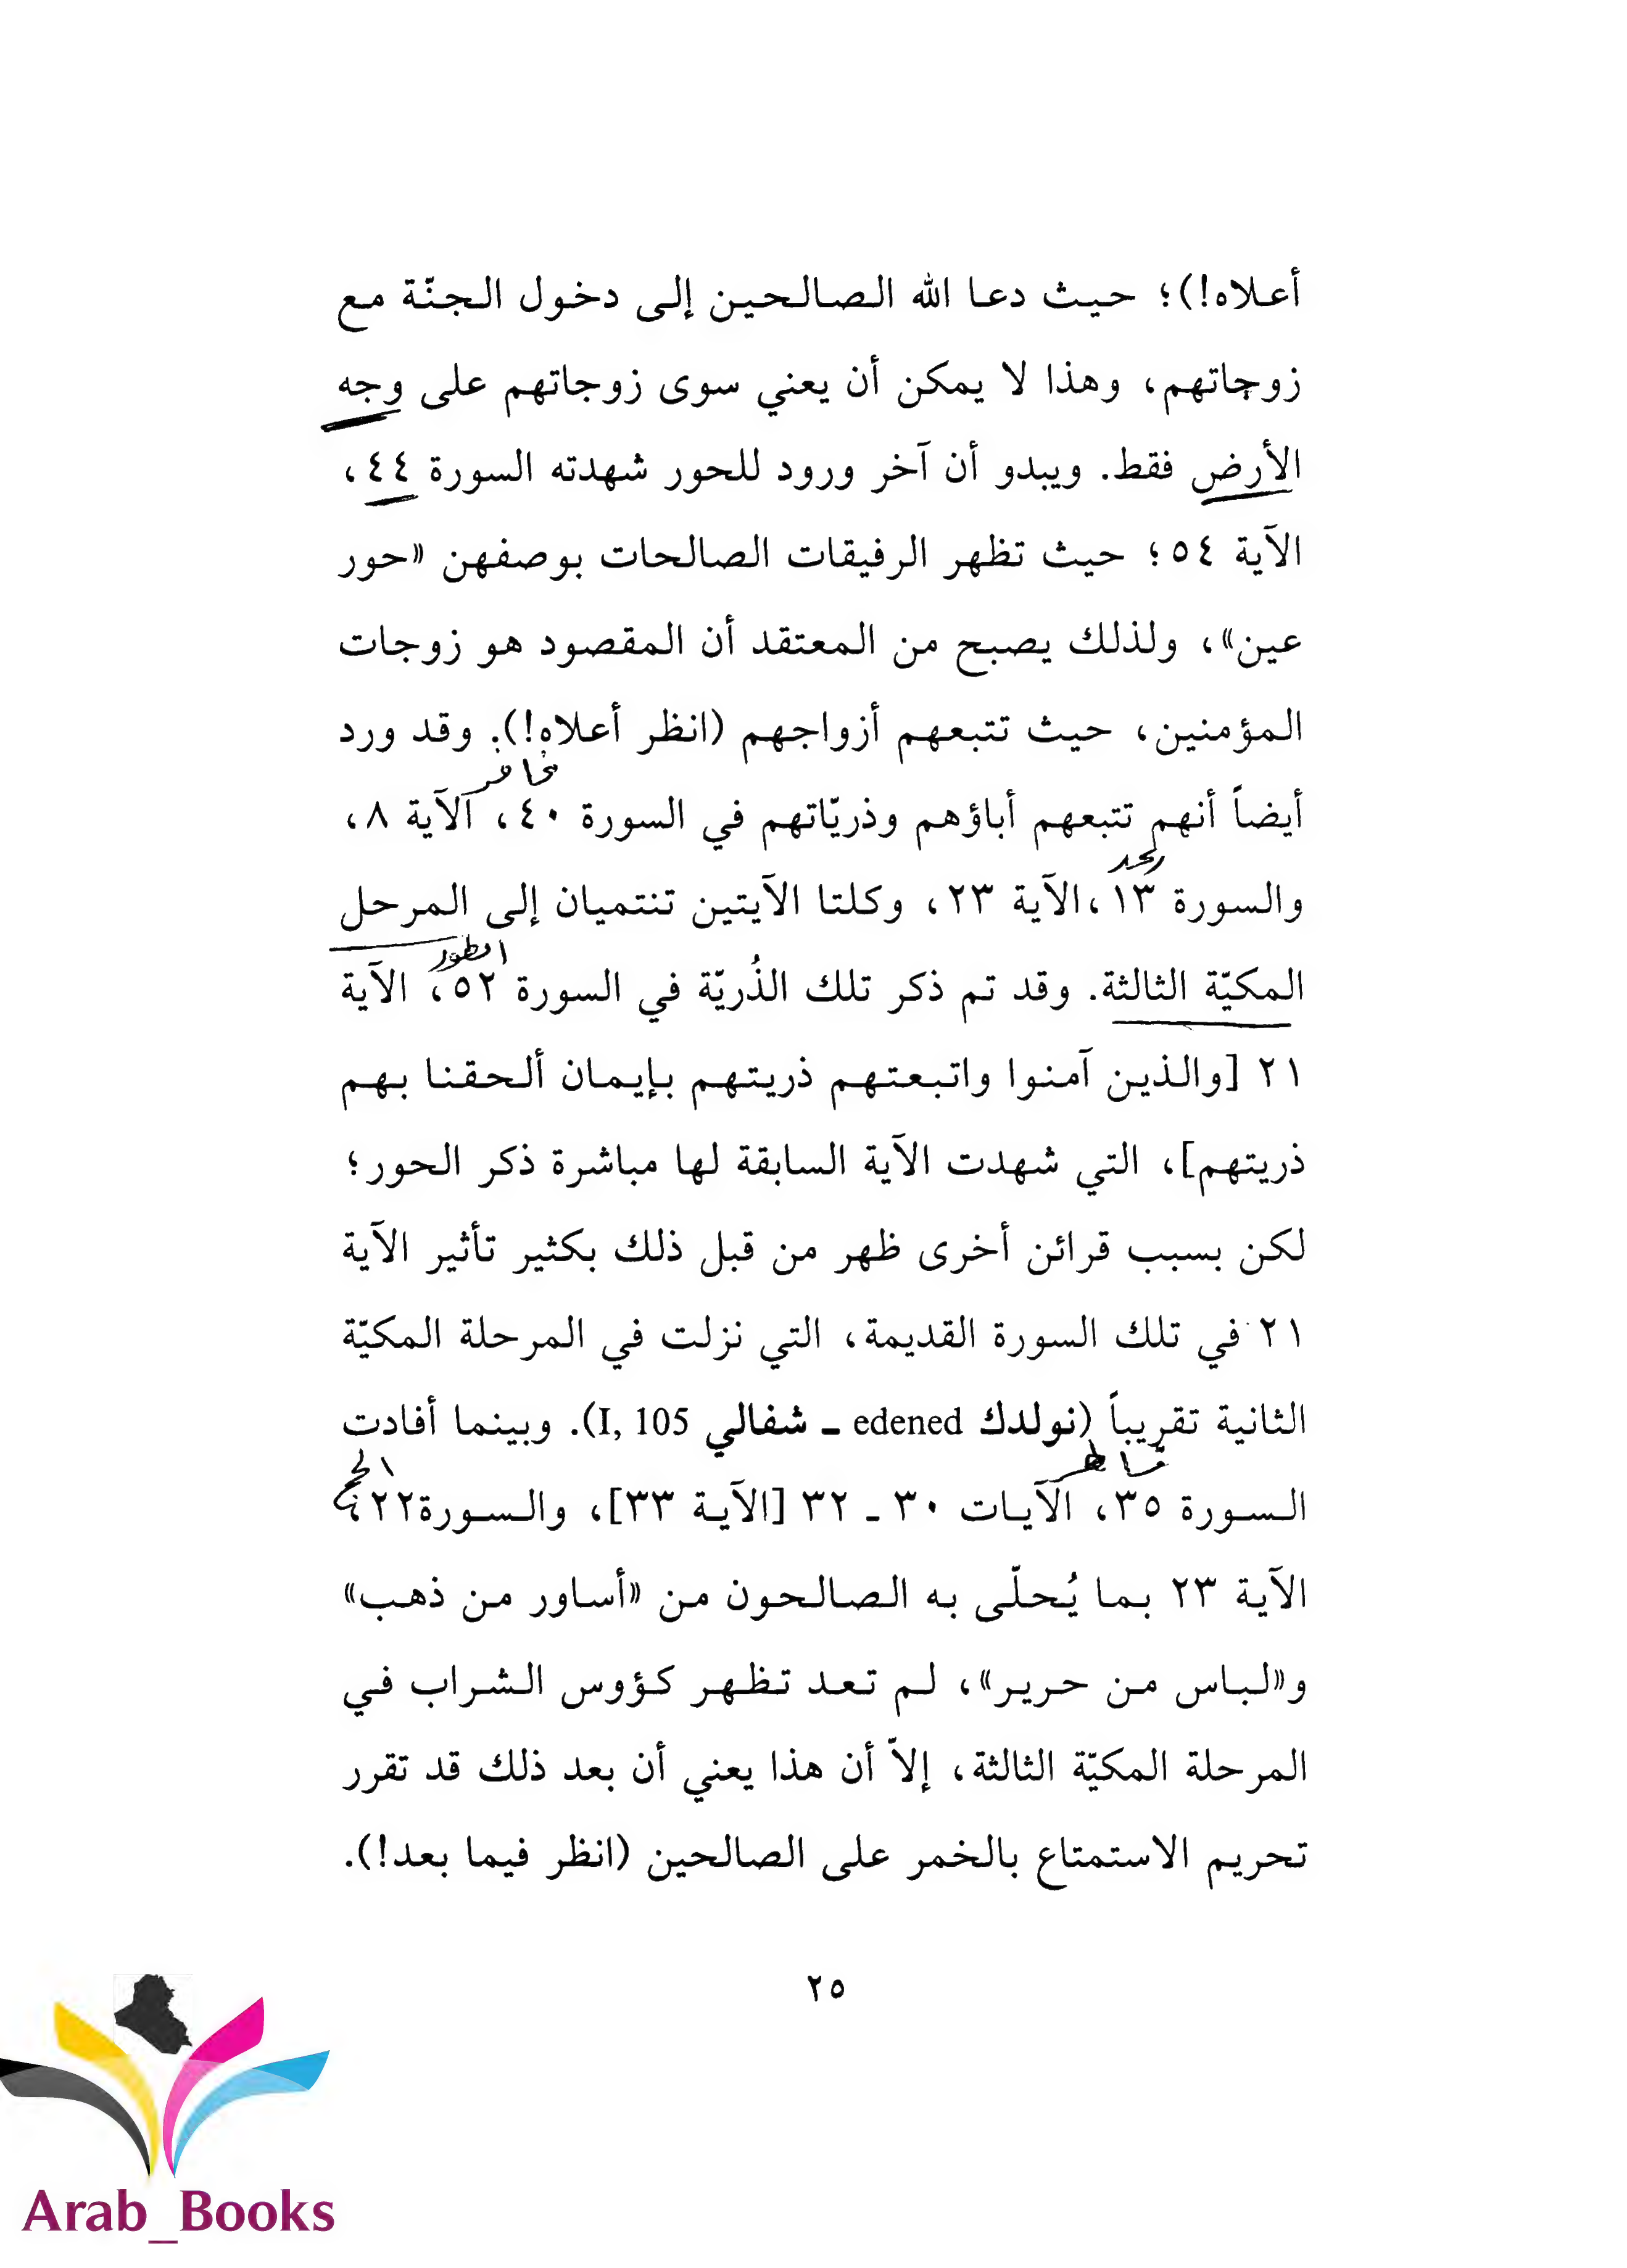 أعلاه!)؛ حيث دعا الله الصالحين إلى دخول الجنّة مع
زوجاتهم، وهذا لا يمكن أن يعني سوى زوجاتهم على وجه
الأرض فقط. ويبدو أن آخر ورود للحور شهدته السورة ٤٤،
الآية ٥٤؛ حيث تظهر الرفيقات الصالحات بوصفهن «حور
عين»، ولذلك يصبح من المعتقد أن المقصود هو زوجات
المؤمنين، حيث تتبعهم أزواجهم (انظر أعلاه!). وقد ورد
غافر
أيضاً أنهم تتبعهم أباؤهم وذريّاتهم في السورة ٤٠، الآية ٨،
رعد
والسورة ١٣،الآية ٢٣، وكلتا الآيتين تنتميان إلى المرحل
الطور
المكيّة الثالثة. وقد تم ذكر تلك الذُريّة في السورة ٥٢، الآية
٢١ [والذين آمنوا واتبعتهم ذريتهم بإيمان ألحقنا بهم
ذريتهم]، التي شهدت الآية السابقة لها مباشرة ذكر الحور؛
لكن بسبب قرائن أخرى ظهر من قبل ذلك بكثير تأثير الآية
٢١ في تلك السورة القديمة، التي نزلت في المرحلة المكيّة
الثانية تقريباً (نولدك edened ـ شفالي I, 105). وبينما أفادت
فاطر الحج
السورة ٣٥، الآيات ٣٠ ـ ٣٢ [الآية ٣٣]، والسورة٢٢،
الآية ٢٣ بما يُحلّى به الصالحون من «أساور من ذهب»
و«لباس من حرير»، لم تعد تظهر كؤوس الشراب في
المرحلة المكيّة الثالثة، إلاّ أن هذا يعني أن بعد ذلك قد تقرر
تحريم الاستمتاع بالخمر على الصالحين (انظر فيما بعد!).
٢٥
Arab_Books